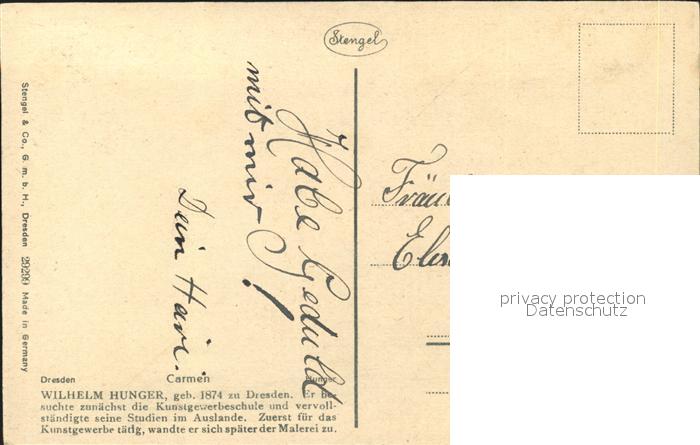 Stengel
Habe Geduld
mit mir!
Dein Hari.
Stengel & Co., G. m. b. H., Dresden 29299 Made in Germany
Dresden Carmen Hunger
WILHELM HUNGER, geb. 1874 zu Dresden. Er be-
suchte zunächst die Kunstgewerbeschule und vervoll-
ständigte seine Studien im Auslande. Zuerst für das
Kunstgewerbe tätig, wandte er sich später der Malerei zu.
privacy protection
Datenschutz